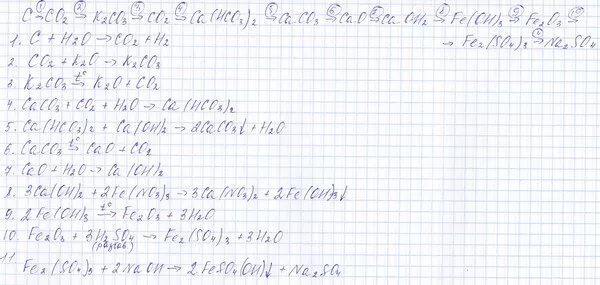 C →① CO₂ →② K₂CO₃ →③ CO₂ →④ Ca(HCO₃)₂ →⑤ CaCO₃ →⑥ CaO →⑦ Ca(OH)₂ →⑧ Fe(OH)₃ →⑨ Fe₂O₃ →⑩
→ Fe₂(SO₄)₃ →⑪ Na₂SO₄
1. C + H₂O → CO₂ + H₂
2. CO₂ + K₂O → K₂CO₃
3. K₂CO₃ →t° K₂O + CO₂
4. CaCO₃ + CO₂ + H₂O → Ca(HCO₃)₂
5. Ca(HCO₃)₂ + Ca(OH)₂ → 2CaCO₃↓ + H₂O
6. CaCO₃ →t° CaO + CO₂
7. CaO + H₂O → Ca(OH)₂
8. 3Ca(OH)₂ + 2Fe(NO₃)₃ → 3Ca(NO₃)₂ + 2Fe(OH)₃↓
9. 2Fe(OH)₃ →t° Fe₂O₃ + 3H₂O
10. Fe₂O₃ + 3H₂SO₄ → Fe₂(SO₄)₃ + 3H₂O
(разбав)
11. Fe₂(SO₄)₃ + 2NaOH → 2FeSO₄(OH)↓ + Na₂SO₄